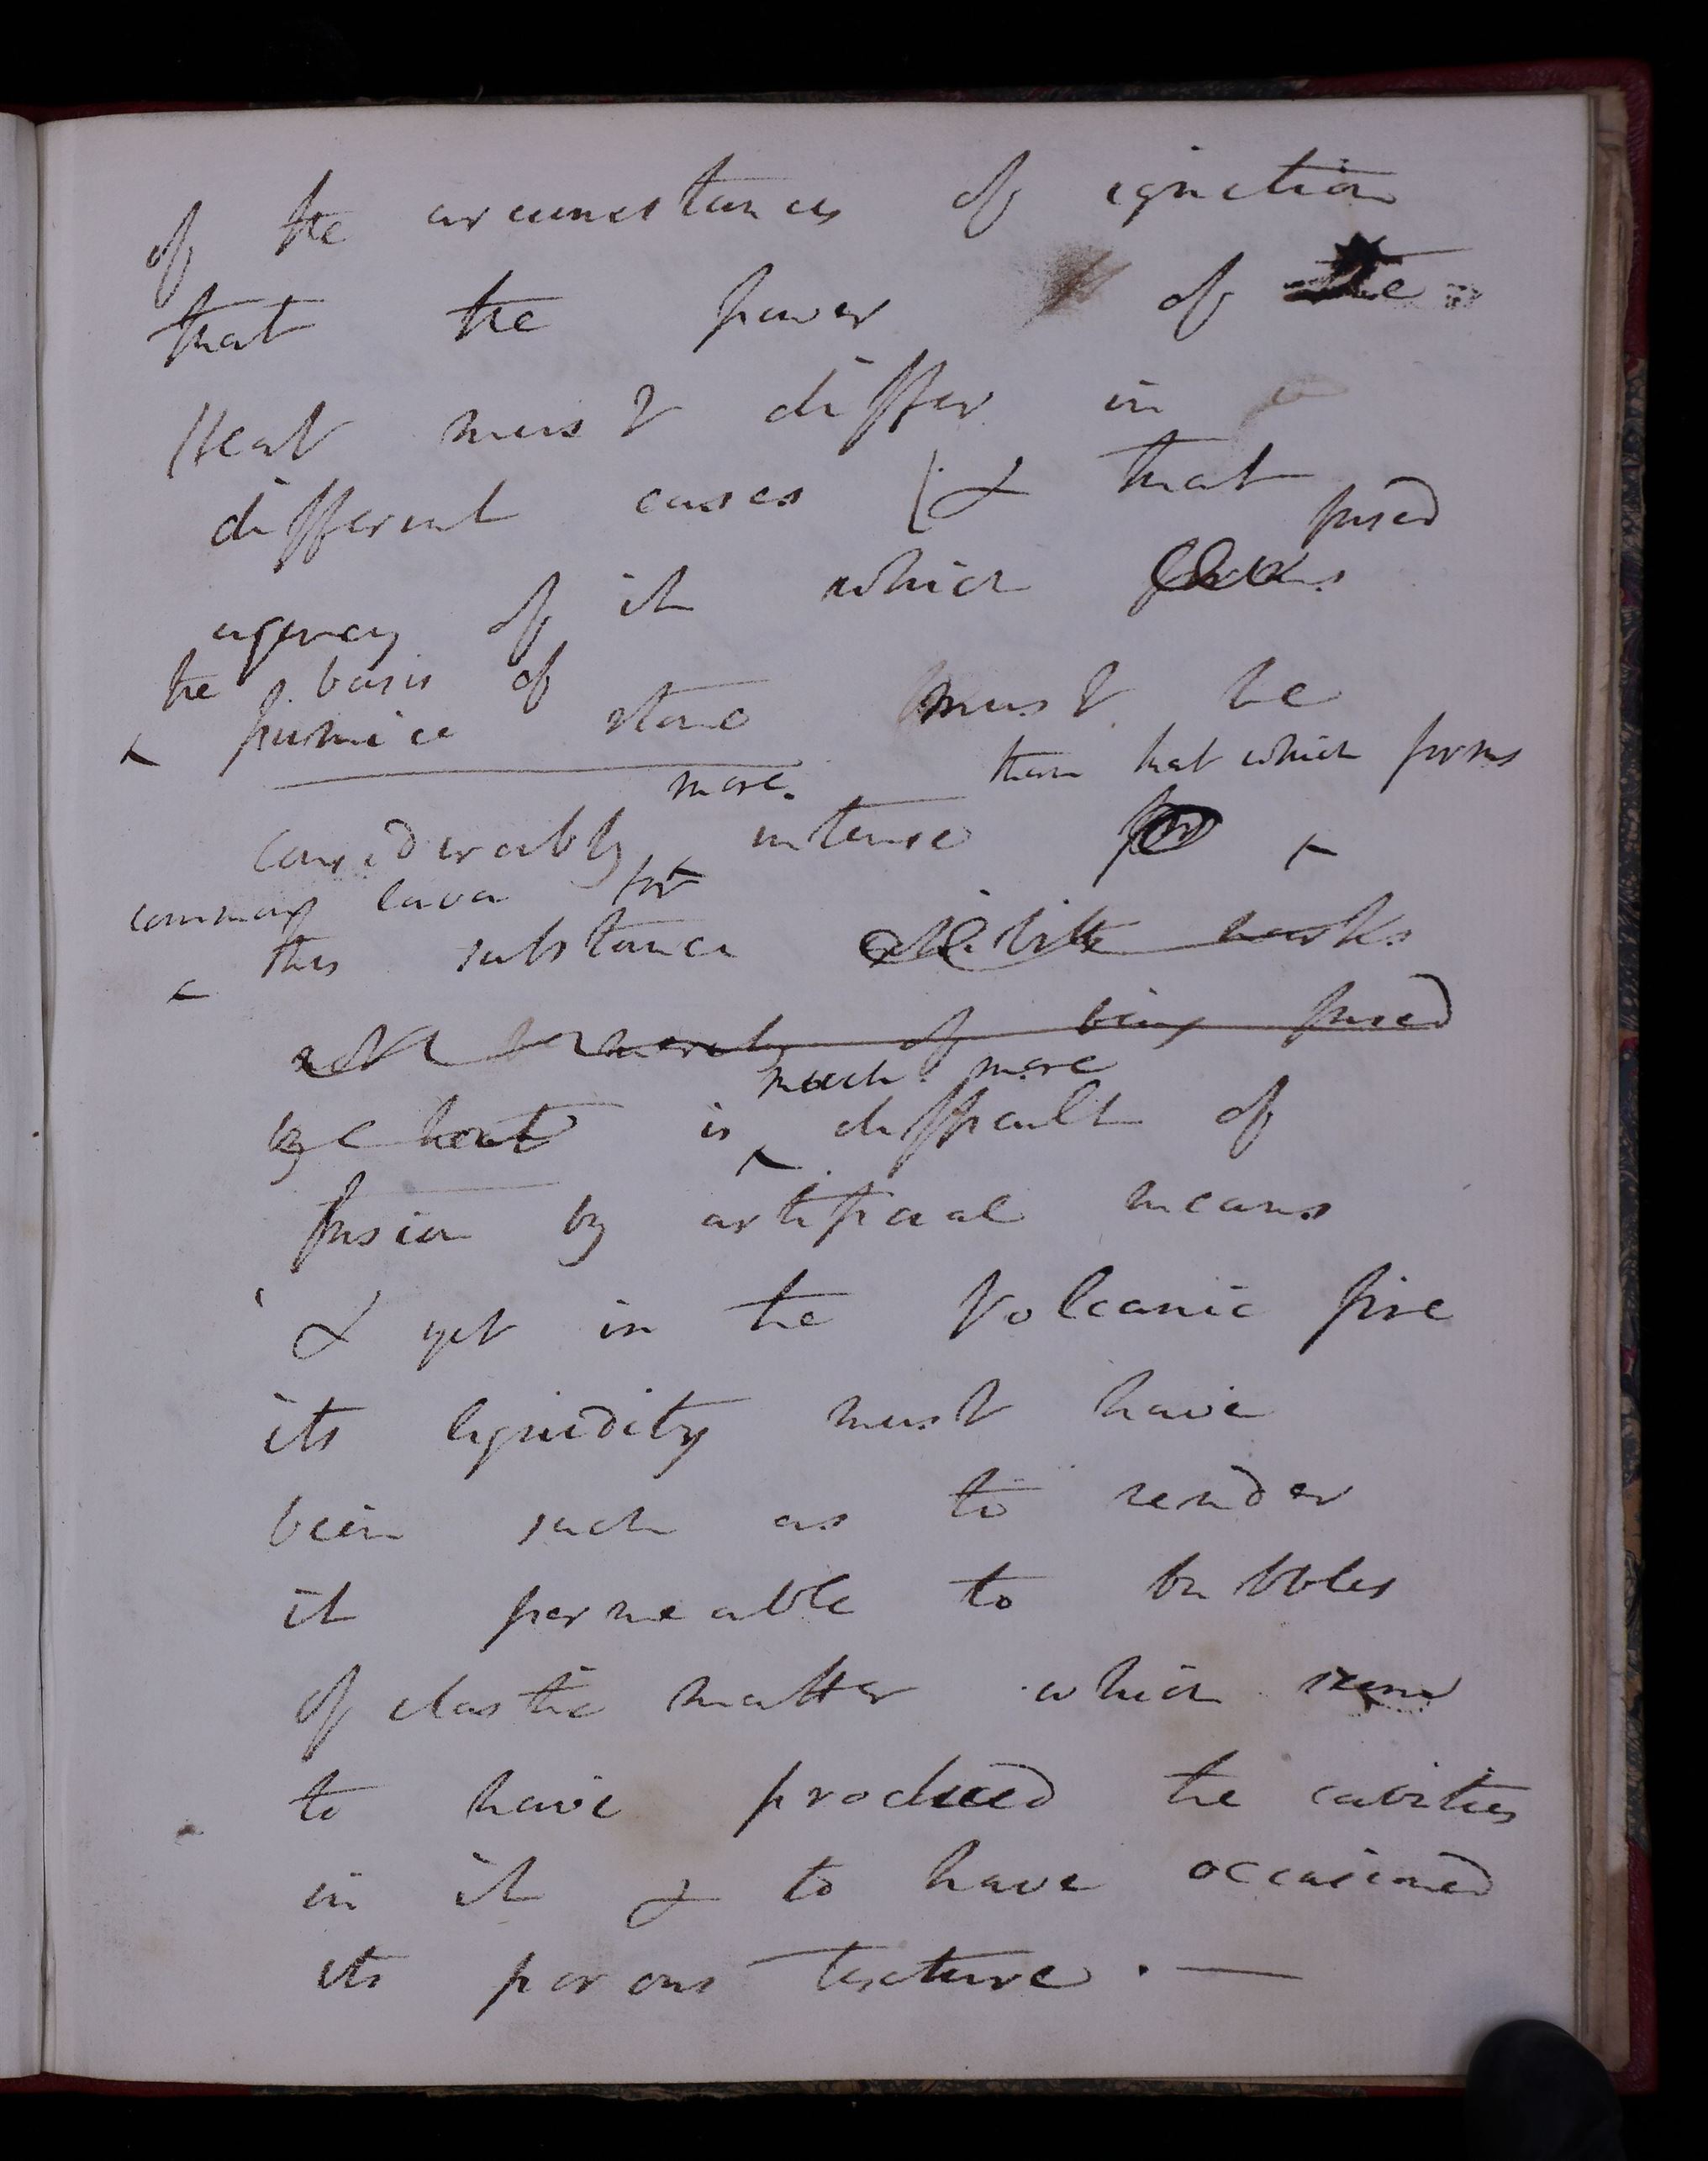 of the circumstances of ignition
that the power of the
Heat must differ in
different cases (& that
fused
agency of it which
the basis of
pumice stone must be
more. than that which forms
considerably intense for
common lava for
this substance exhibits marks
not merely of being fused
much more
by heat is difficult of
fusion by artificial means
& yet in the Volcanic fire
its liquidity must have
been such as to render
it permeable to bubbles
of elastic matter which seem
to have produced the cavities
in it & to have occasioned
its porous texture. —